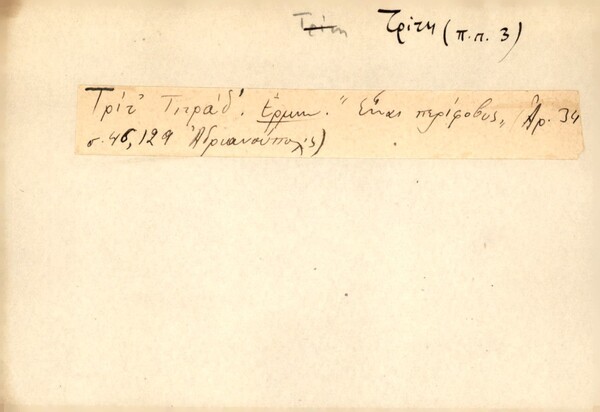 Τρίτη Τρίτη (π.π. 3)
Τρίτ' Τιτράδ'. Ερμην. "Είναι περίφοβος„ (Αρ. 34
σ. 46, 129 Αδριανούπολις)